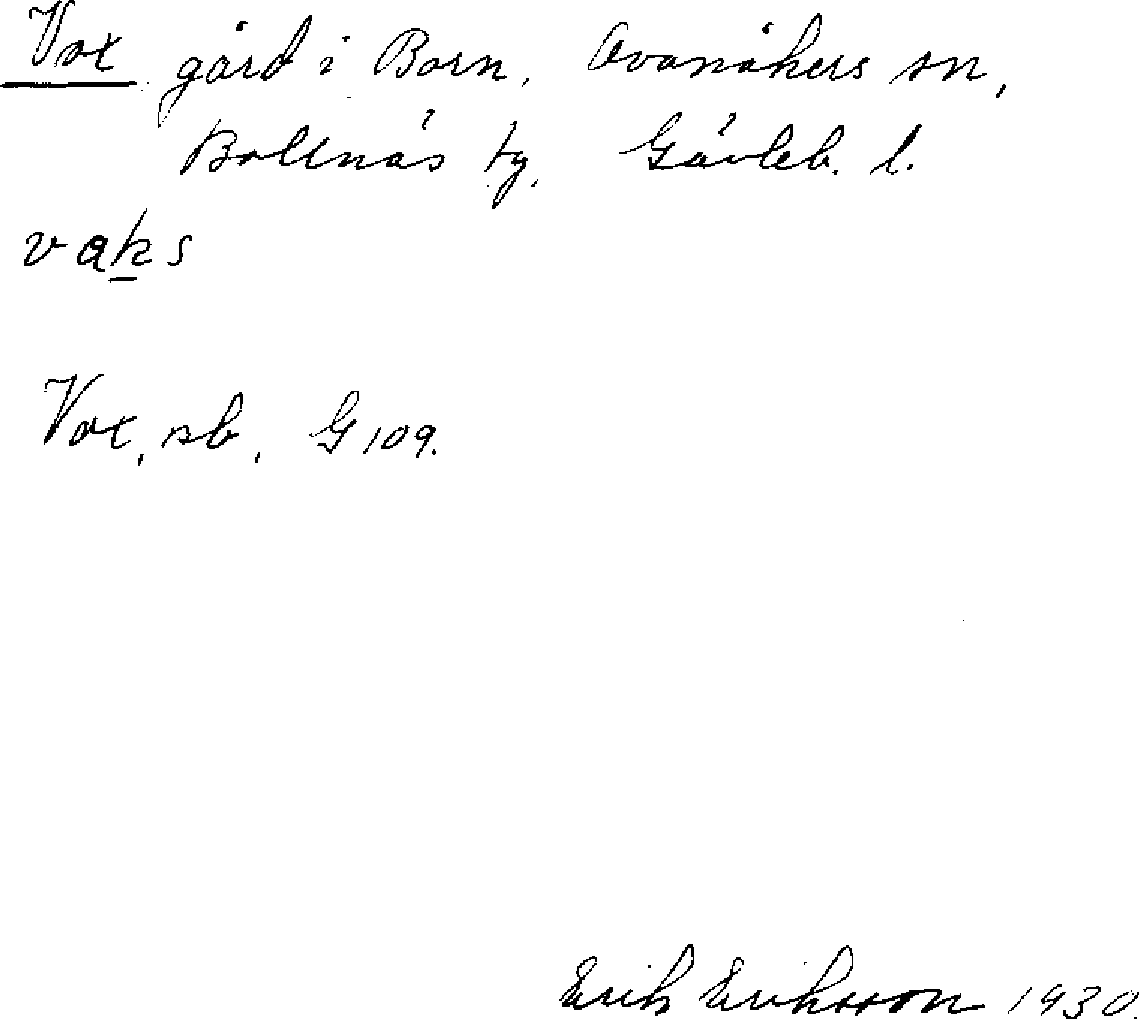 Vax gård i Born, Ovanåkers sn,
Bollnäs tg, Gävleb. l.
vaks
Vax, sb, G 109.
Erik Eriksson 1930.